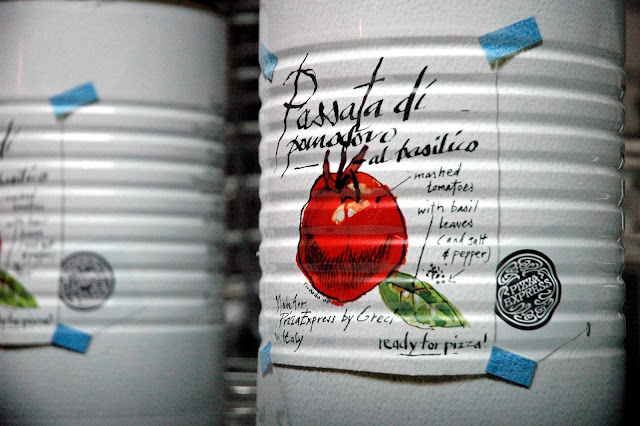 Passata di
pomodoro
al basilico
mashed
tomatoes
with basil
leaves
(and salt
& pepper)
PIZZA
EXPRESS
Made for
PizzaExpress by Greci
in Italy
ready for pizza!
di
basilico
ready for pizza!